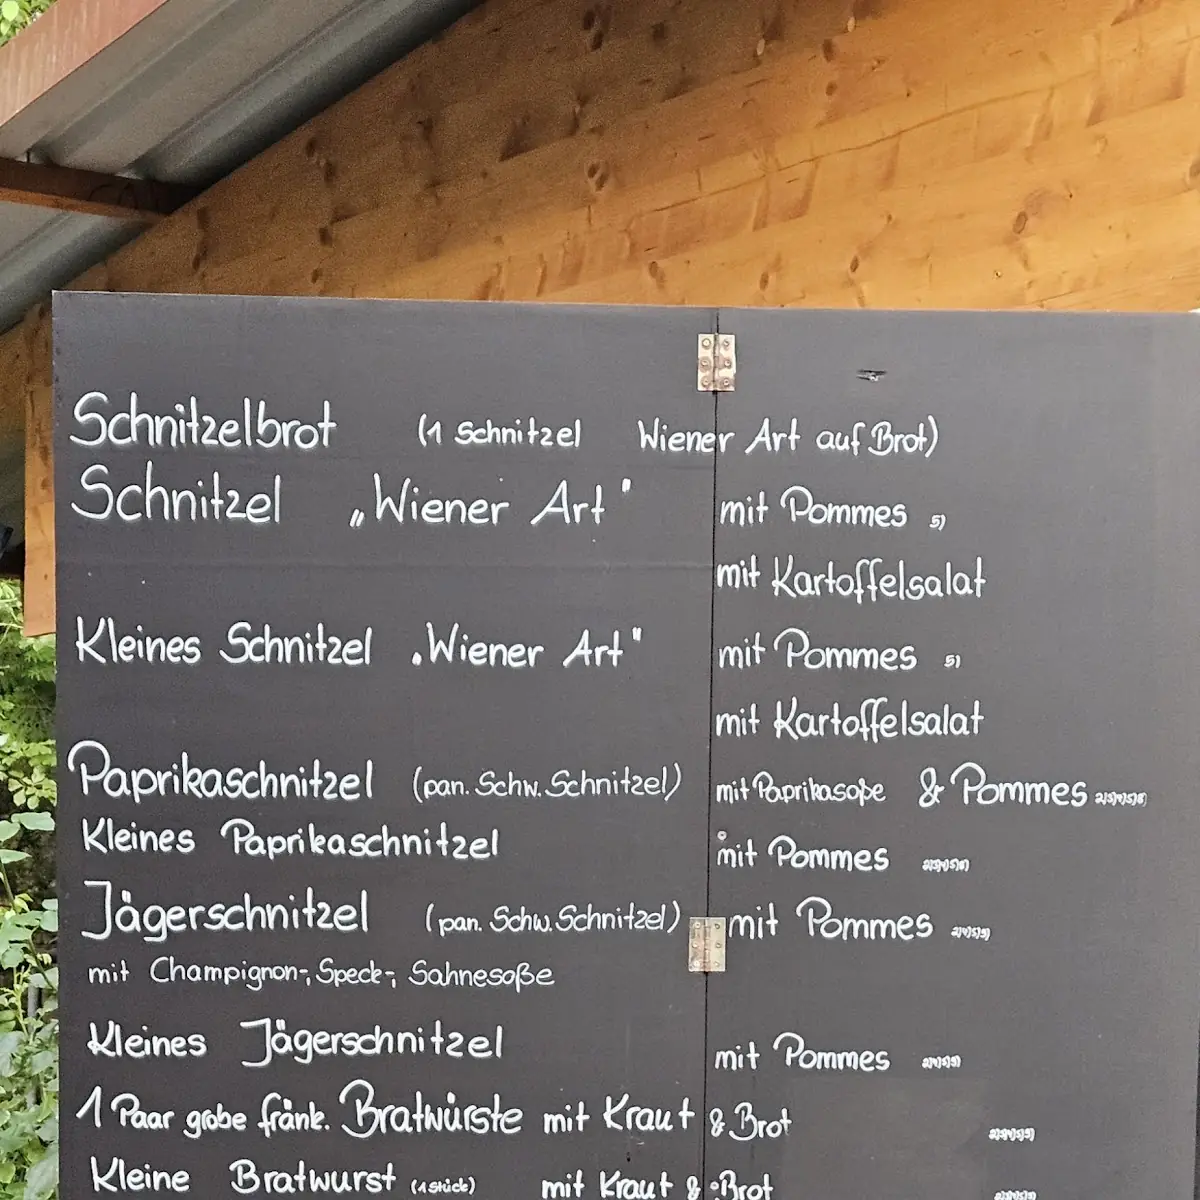 Schnitzelbrot (1 Schnitzel Wiener Art auf Brot)
Schnitzel „Wiener Art" mit Pommes 5)
mit Kartoffelsalat
Kleines Schnitzel „Wiener Art" mit Pommes 5)
mit Kartoffelsalat
Paprikaschnitzel (pan. Schw. Schnitzel) mit Paprikasoße & Pommes
Kleines Paprikaschnitzel mit Pommes
Jägerschnitzel (pan. Schw. Schnitzel) mit Pommes
mit Champignon-, Speck-, Sahnesoße
Kleines Jägerschnitzel mit Pommes
1 Paar grobe fränk. Bratwürste mit Kraut & Brot
Kleine Bratwurst (1 Stück) mit Kraut & Brot